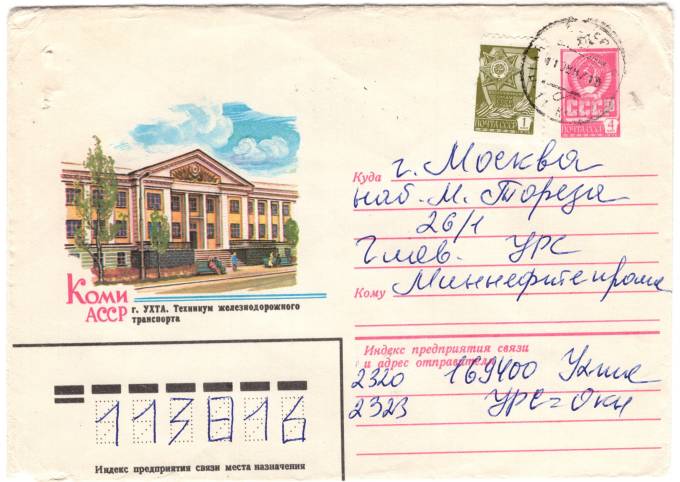 1
ПОЧТА СССР
СССР
4
ПОЧТА СССР
Коми
АССР
г. УХТА. Техникум железнодорожного
транспорта
Куда г. Москва
наб. М. Тореза
26/1
Главн. УРС
Кому Миннефтепрома
Индекс предприятия связи
и адрес отправителя
2320 169400 Ухта
2323
113816
Индекс предприятия связи места назначения